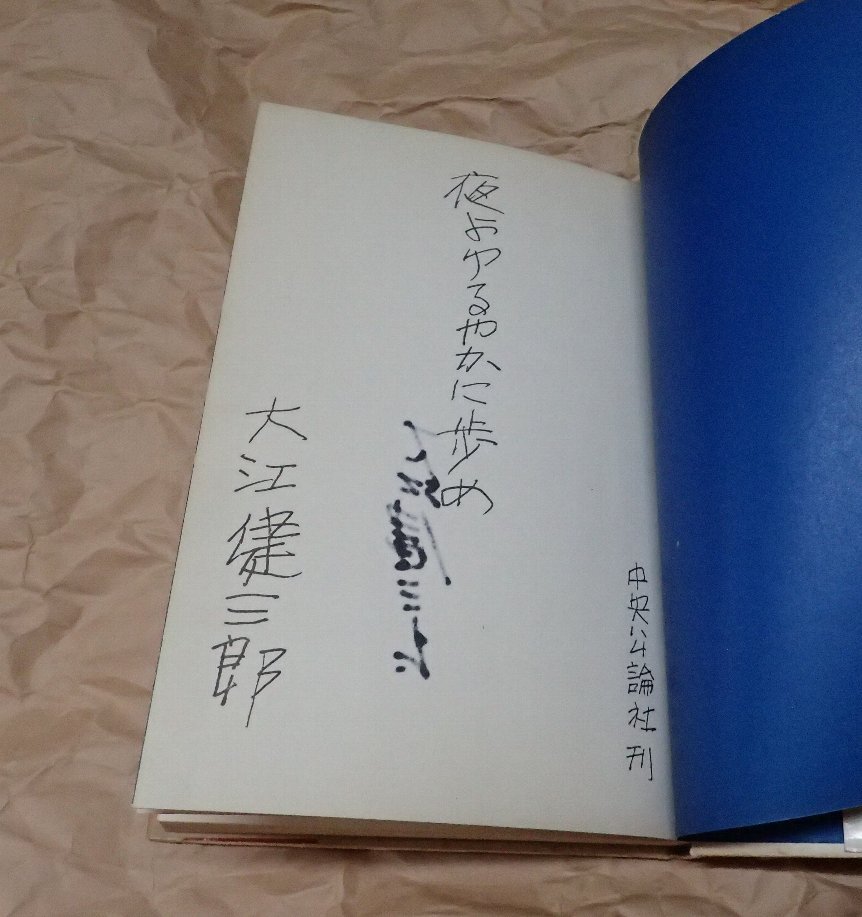 夜よゆるやかに歩め
大江健三郎
中央公論社刊